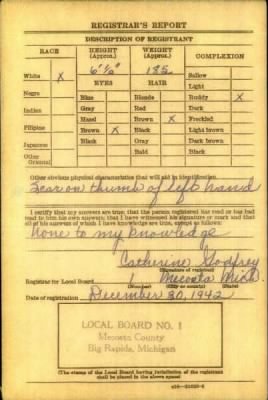 REGISTRAR'S REPORT
DESCRIPTION OF REGISTRANT
RACE HEIGHT (Approx.) WEIGHT (Approx.) COMPLEXION
6' ½" 185 Sallow
White X EYES HAIR Light
Negro Blue Blonde Ruddy X
Gray Red Dark
Indian Hazel Brown X Freckled
Filipino Brown X Black Light brown
Japanese Black Gray Dark brown
Other Oriental Bald Black
Other obvious physical characteristics that will aid in identification.
Scar on thumb of left hand
I certify that my answers are true; that the person registered has read or has had
read to him his own answers; that I have witnessed his signature or mark and that
all of his answers of which I have knowledge are true, except as follows:
None to my knowledge
Catherine Godfrey
(Signature of registrar)
Registrar for Local Board 1 Mecosta Mich.
(Number) (City or county) (State)
Date of registration December 30, 1942
LOCAL BOARD NO. 1
Mecosta County
Big Rapids, Michigan
(The stamp of the Local Board having jurisdiction of the registrant
shall be placed in the above space)